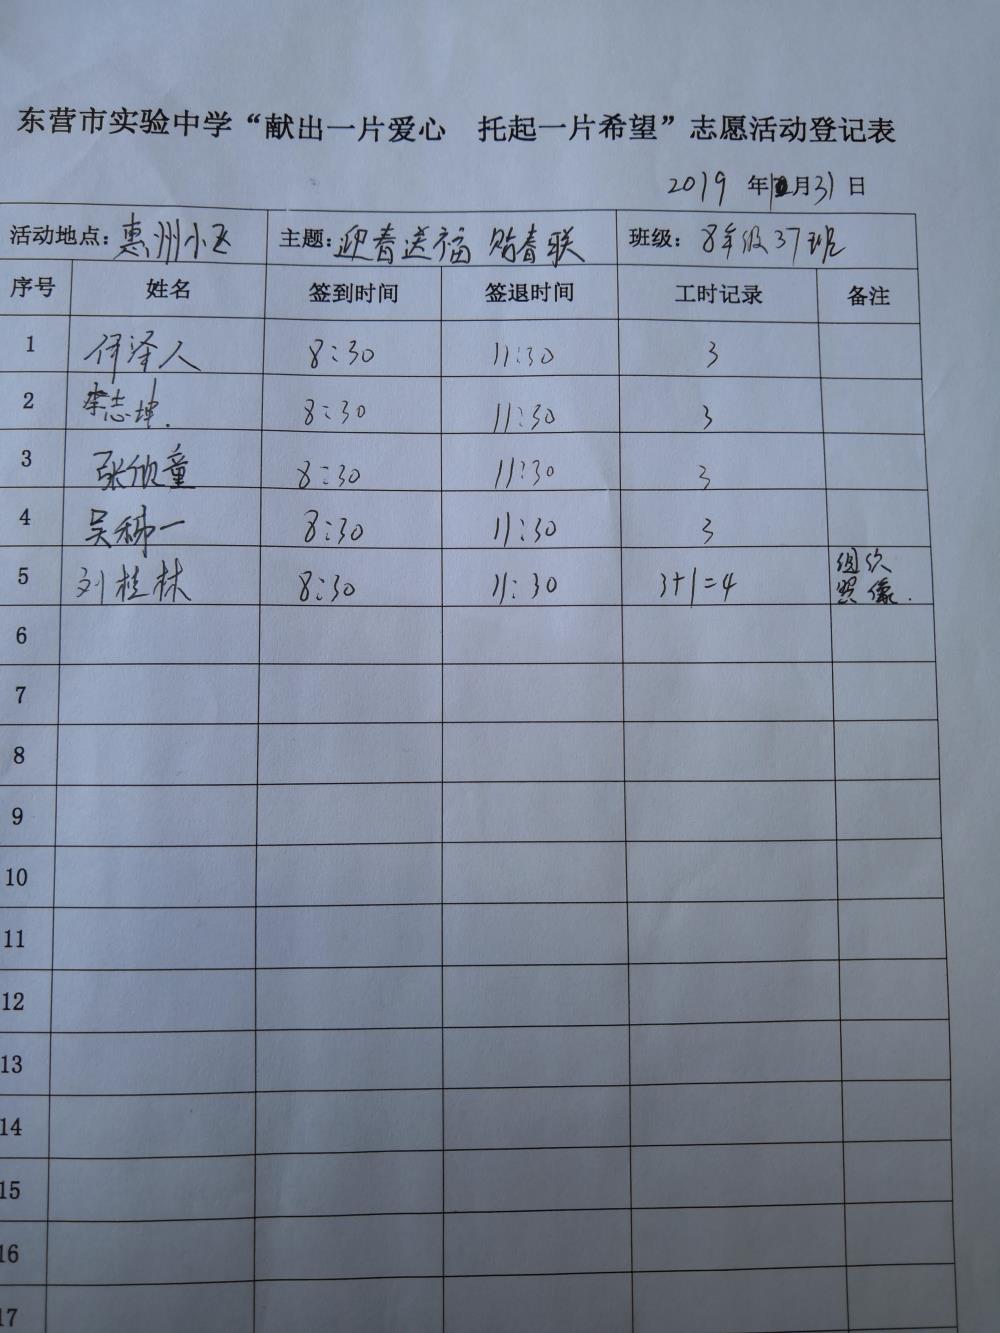 东营市实验中学“献出一片爱心 托起一片希望”志愿活动登记表
2019 年 月 31 日
活动地点：惠州小区 主题：迎春送福 贴春联 班级：8年级37班
序号 姓名 签到时间 签退时间 工时记录 备注
1 泽人 8:30 11:30 3
2 李志坤. 8:30 11:30 3
3 张欣童 8:30 11:30 3
4 吴 一 8:30 11:30 3
5 刘桂林 8:30 11:30 3+1=4 组织
照像.
6
7
8
9
10
11
12
13
14
15
16
17